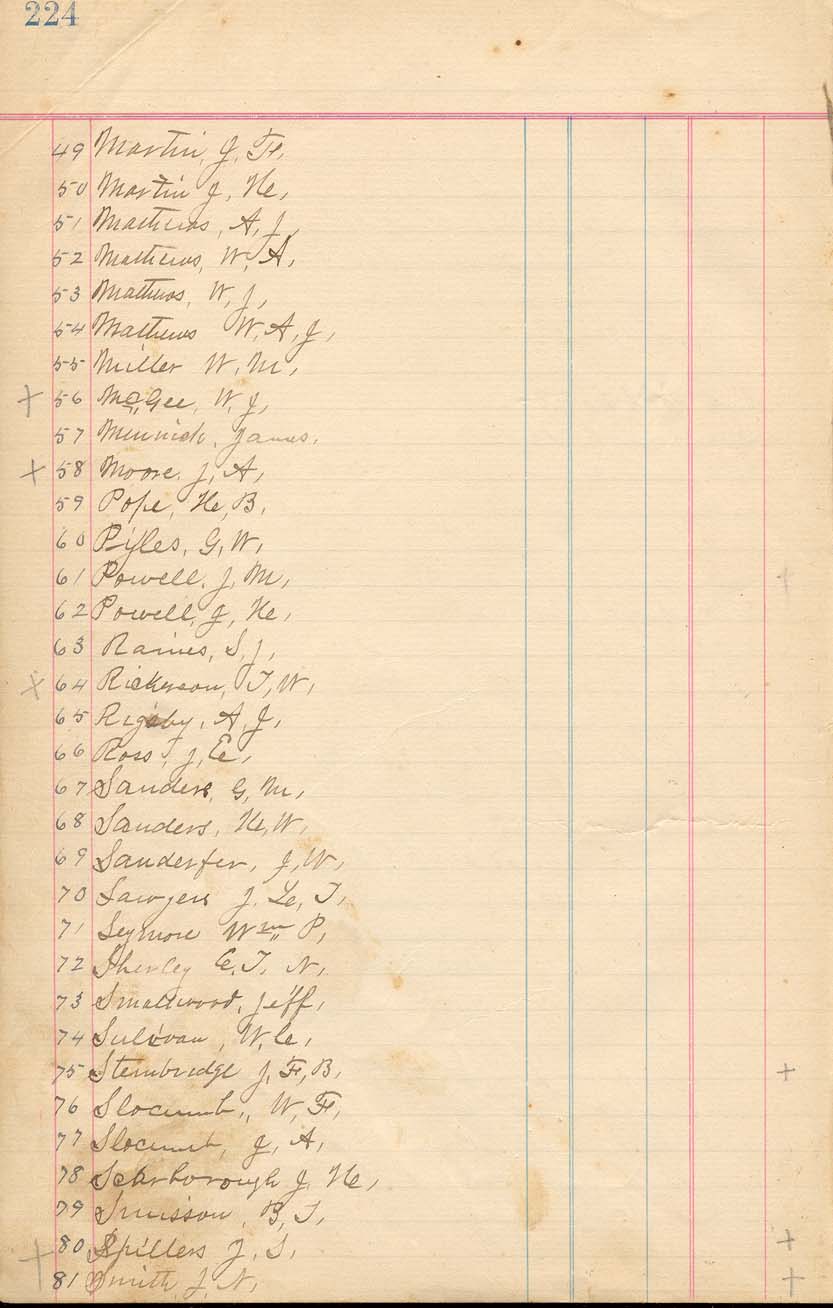 224
49 Martin, J, F,
50 Martin J, H,
51 Mathews, A, J,
52 Mathews, W, A,
53 Mathews, W, J,
54 Mathews W, A, J,
55 Miller W, M,
+ 56 McGee, W, J,
57 Minnich, James,
+ 58 Moore, J, A,
59 Pope, H, B,
60 Pyles, G, W,
61 Powell, J, M, +
62 Powell, J, H,
63 Raines, S, J,
+ 64 Rickerson, T, W,
65 Rigsby, A, J,
66 Ross, J, E,
67 Sanders, G, M,
68 Sanders, H, W,
69 Sanderfer, J, W,
70 Sawyers J, L, T,
71 Seymore Wm P,
72 Sherley C, T, N,
73 Smallwood, Jeff,
74 Sulivan, W, C,
75 Stembridge J, F, B, +
76 Slocumb, W, F,
77 Slocumb, J, A,
78 Scarborough J, H,
79 Sinisson, B, T,
+ 80 Spillers J, S, +
81 Smith J, N, +